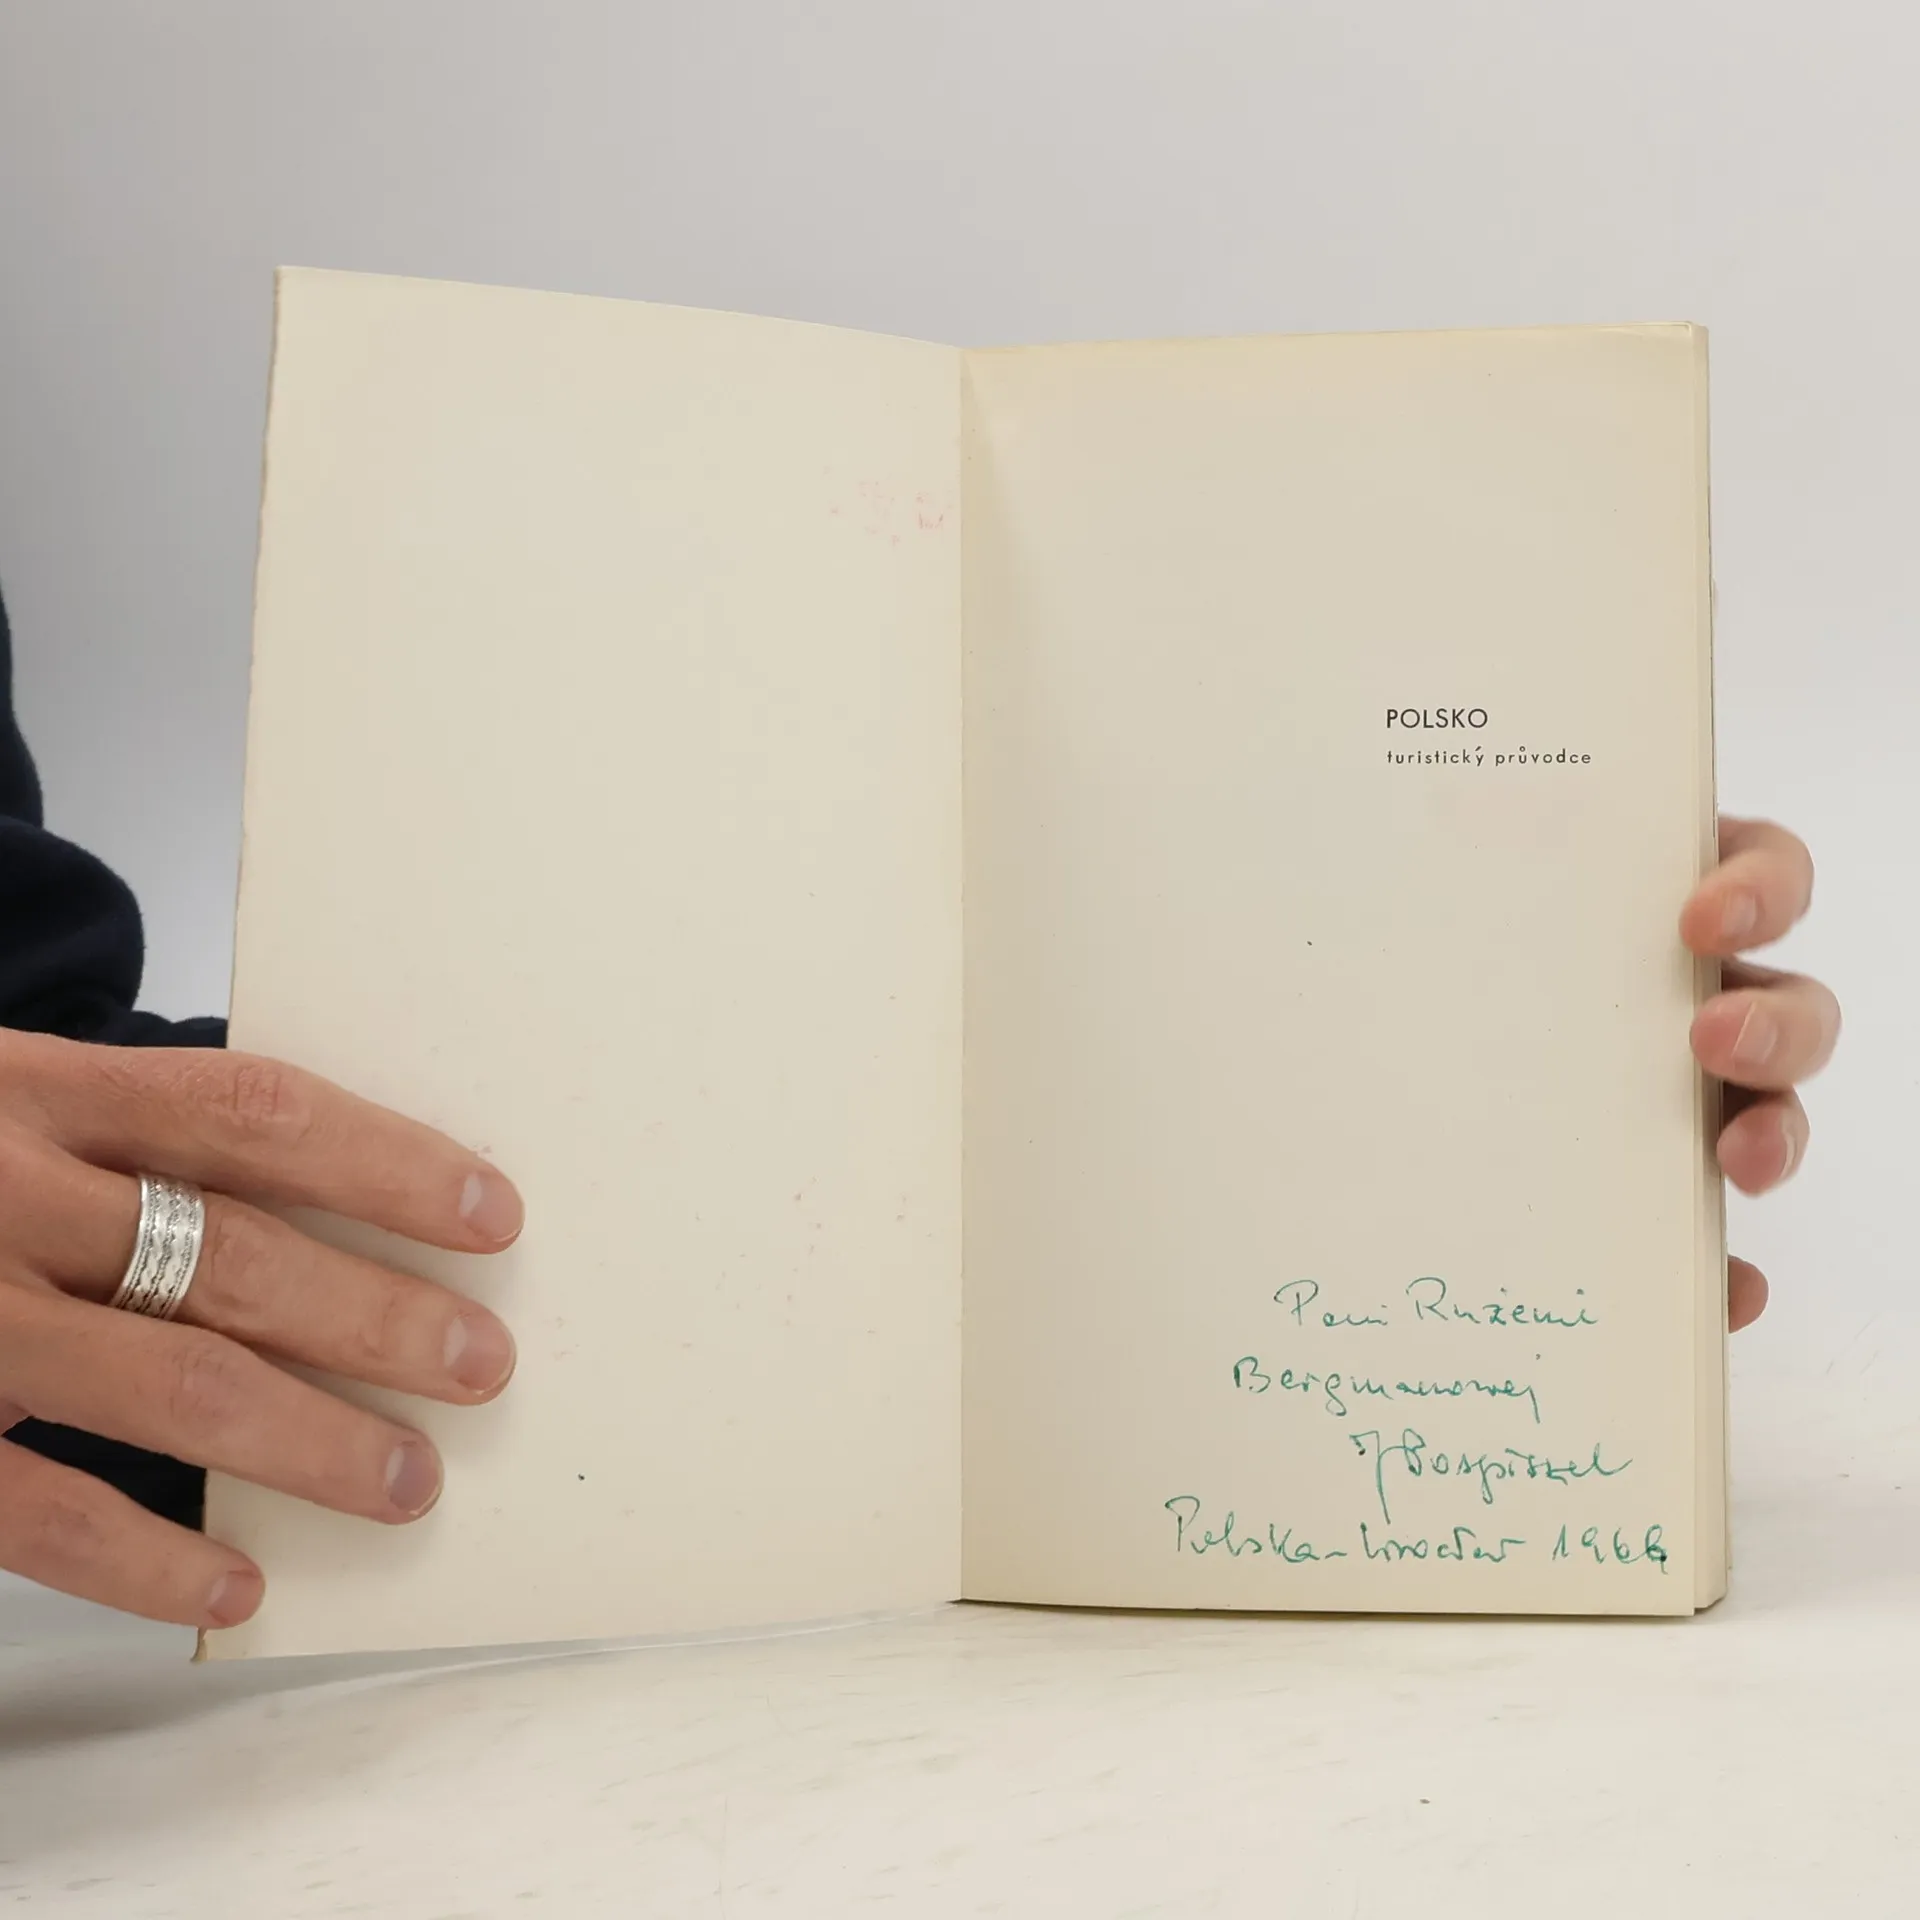 POLSKO
turistický průvodce
Pani Ruženi
Bergmanowej
J Pospiszel
Polska-Wrocław 1966